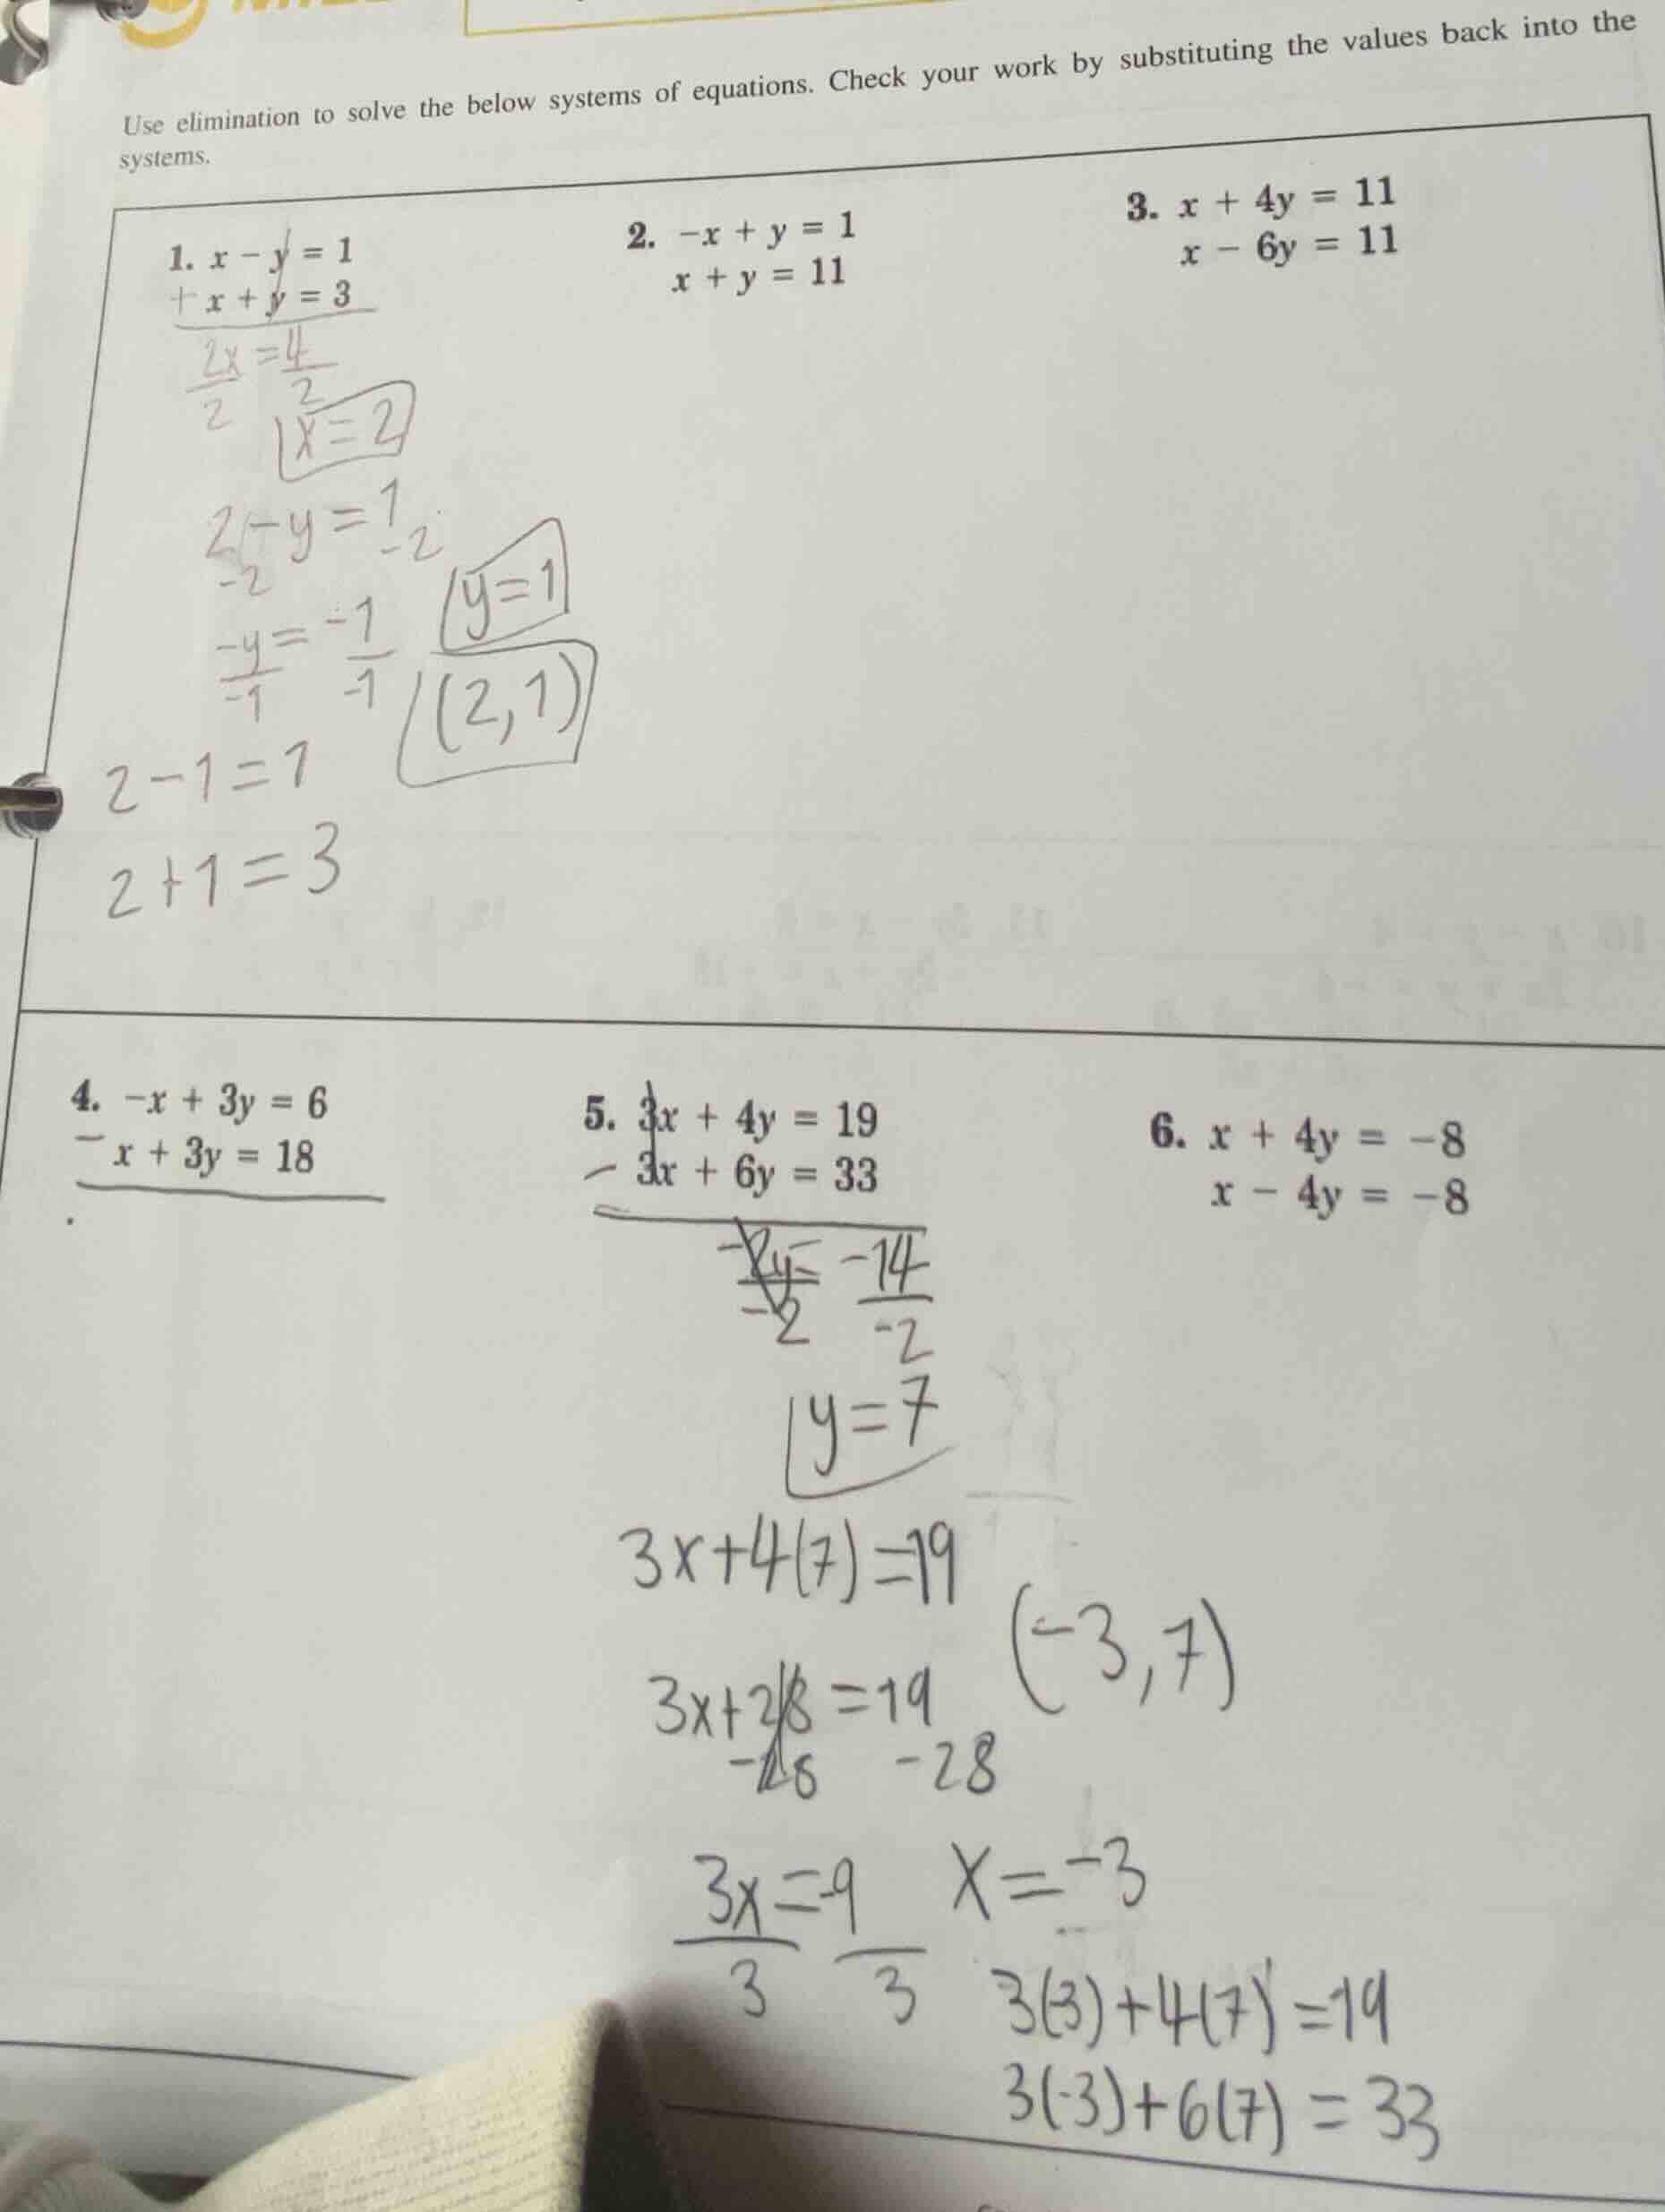 Use elimination to solve the below systems of equations. Check your work by substituting the values back into the
systems.
1. x - y = 1
+ x + y = 3
2x = 4
2 2
x = 2
2 - y = 1
-2 -2
-y = -1
-1 -1
y = 1
(2, 1)
2 - 1 = 1
2 + 1 = 3
2. -x + y = 1
x + y = 11
3. x + 4y = 11
x - 6y = 11
4. -x + 3y = 6
- x + 3y = 18
5. 3x + 4y = 19
- 3x + 6y = 33
-2y = -14
-2 -2
y = 7
3x + 4(7) = 19
3x + 28 = 19
-28 -28
3x = -9
3 3
x = -3
(-3, 7)
3(-3) + 4(7) = 19
3(-3) + 6(7) = 33
6. x + 4y = -8
x - 4y = -8